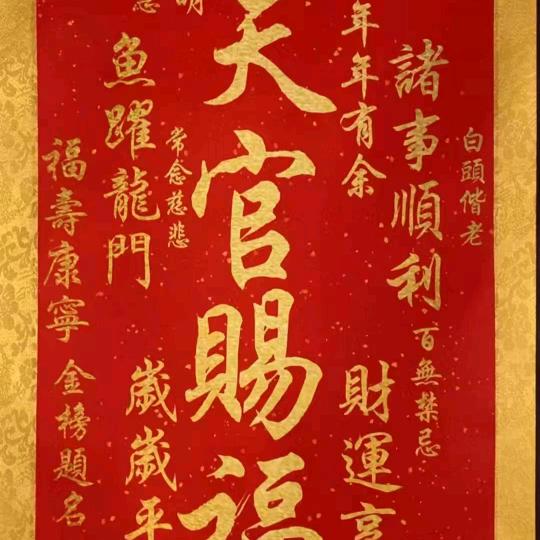 白頭偕老
諸事順利
百無禁忌
年年有余
財運亨
天官賜福
明
常念慈悲
魚躍龍門
歲歲平
福壽康寧
金榜題名